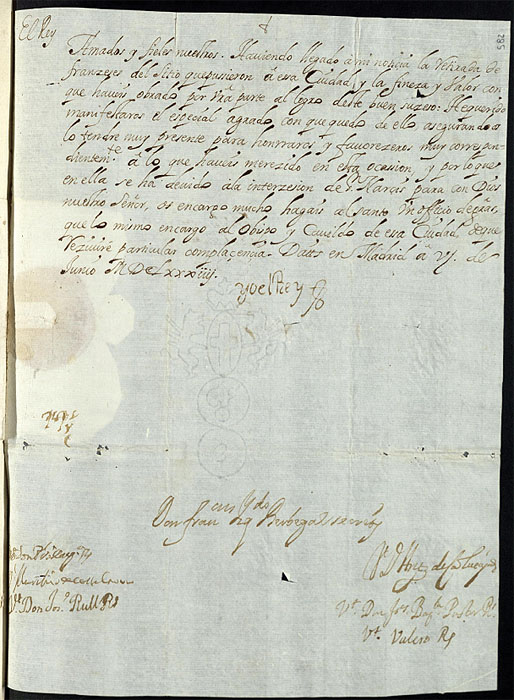 El Rey
582
Amados y fieles nuestros. Haviendo llegado a mi noticia la retirada de
franzeses del sitio que pusieron â esa Ciudad, y la fineza y valor con
que haveis obrado por vrã parte al logro deste buen suzeso. He querido
manifestaros el especial agrado, con que quedo de ello asegurandoos
lo tendre muy presente para honrraros y favorezeros muy correspon-
dientemte. â lo que haveis merezido en esta ocasion, y por lo que
en ella se ha devido ala interzesion de S. Narcis para con Dios
nuestro Señor, os encargo mucho hagais al santo un officio de gras,
que lo mismo encargo al Obispo y Cavildo de esa Ciudad deque
rezivire particular complacencia. Datts en Madrid â vj. de
Junio MDCLxxxiiij.
yo el Rey
Don Fran
Vt. Don Jos. Rull Rs
Vt. Valero Rs